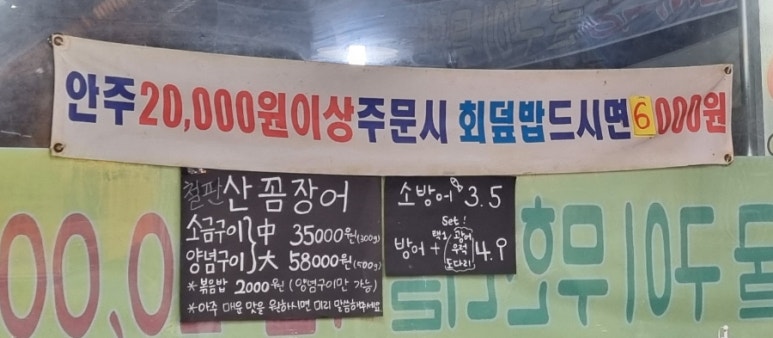 안주20,000원이상주문시 회덮밥드시면6000원
철판산꼼장어
소금구이}中 35000원(300g)
양념구이}大 58000원(500g)
*볶음밥 2000원(양념구이만 가능)
*아주 매운 맛을 원하시면 미리 말씀해주세요
소방어 3.5
Set!
방어+택1(광어 우럭 도다리)4.9